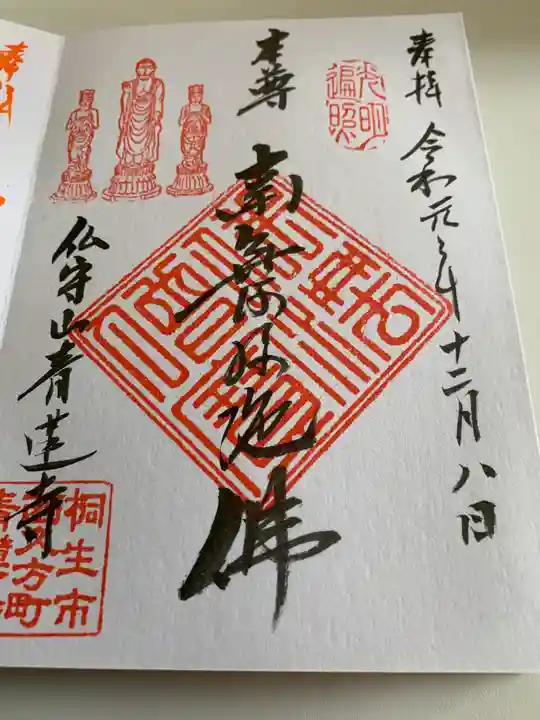 奉拝 令和元年十二月八日
光明
遍照
本尊
南無阿弥陀佛
仏守山青蓮寺
桐生市
方町
青蓮寺
奉拝